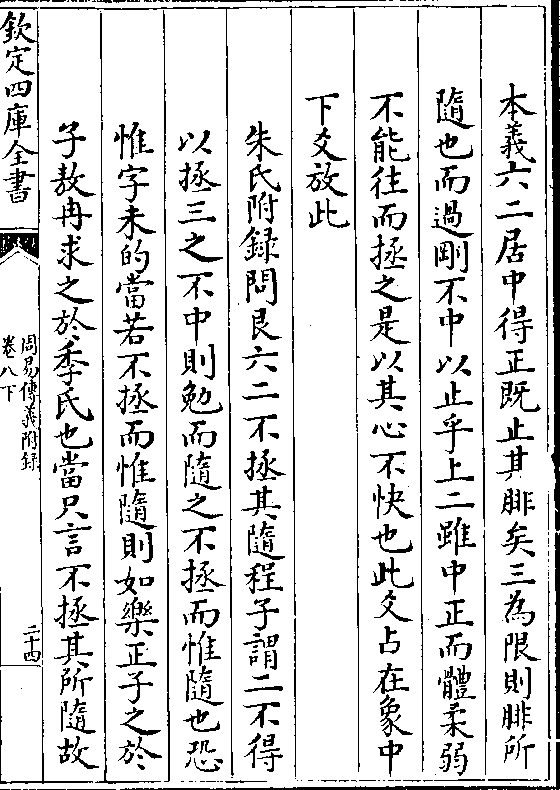 本義六二居中得正既止其腓矣三為限則腓所
隨也而過剛不中以止乎上二雖中正而體柔弱
不能往而拯之是以其心不快也此爻占在象中
下爻放此
朱氏附録問艮六二不拯其隨程子謂二不得
以拯三之不中則勉而隨之不拯而惟隨也恐
惟字未的當若不拯而惟隨則如樂正子之於
子敖冉求之於季氏也當只言不拯其所隨故
欽定四庫全書
周易傳義附録
卷八下
二十四